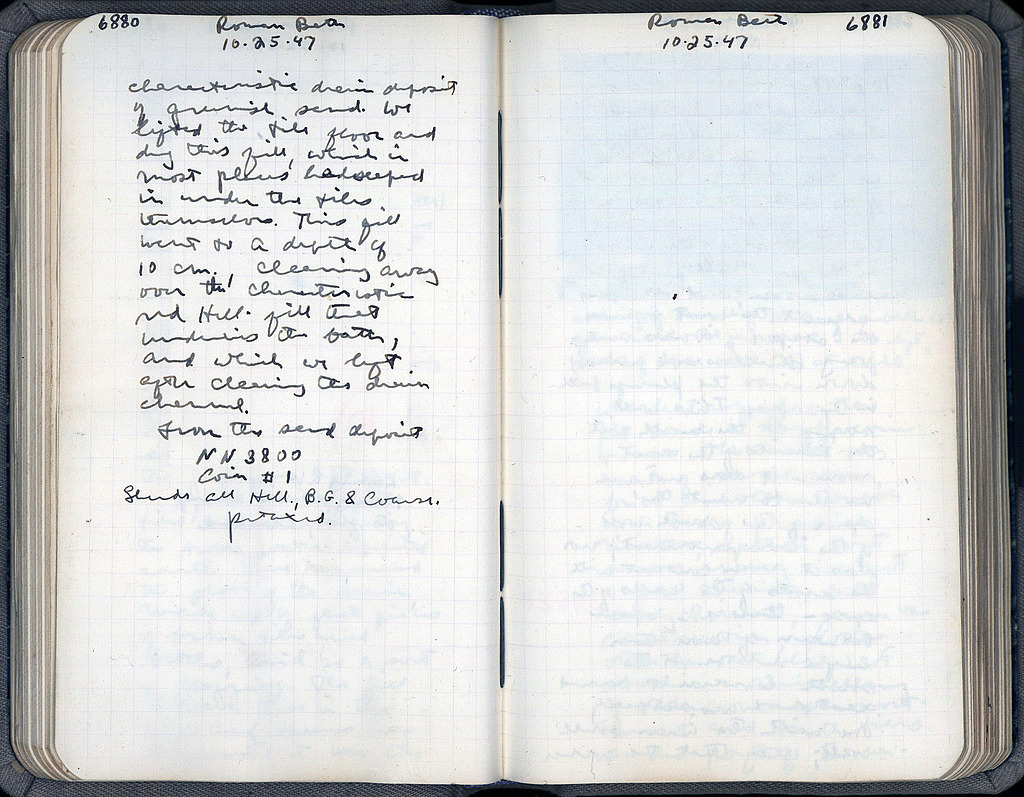 6880 Roman Bath
10.25.47
characteristic drain deposit
of greenish sand. We
lifted the tile floor and
dug this fill, which in
most places had seeped
in under the tiles
themselves. This fill
went to a depth of
10 cm., cleaning away
over the characteristic
red Hell. fill that
underlies the bath,
and which we left
after cleaning the drain
channel.
From the sand deposit
NN 3800
Coin #1
Sherds all Hell., B.G. & Coarse.
Roman Bath 6881
10.25.47